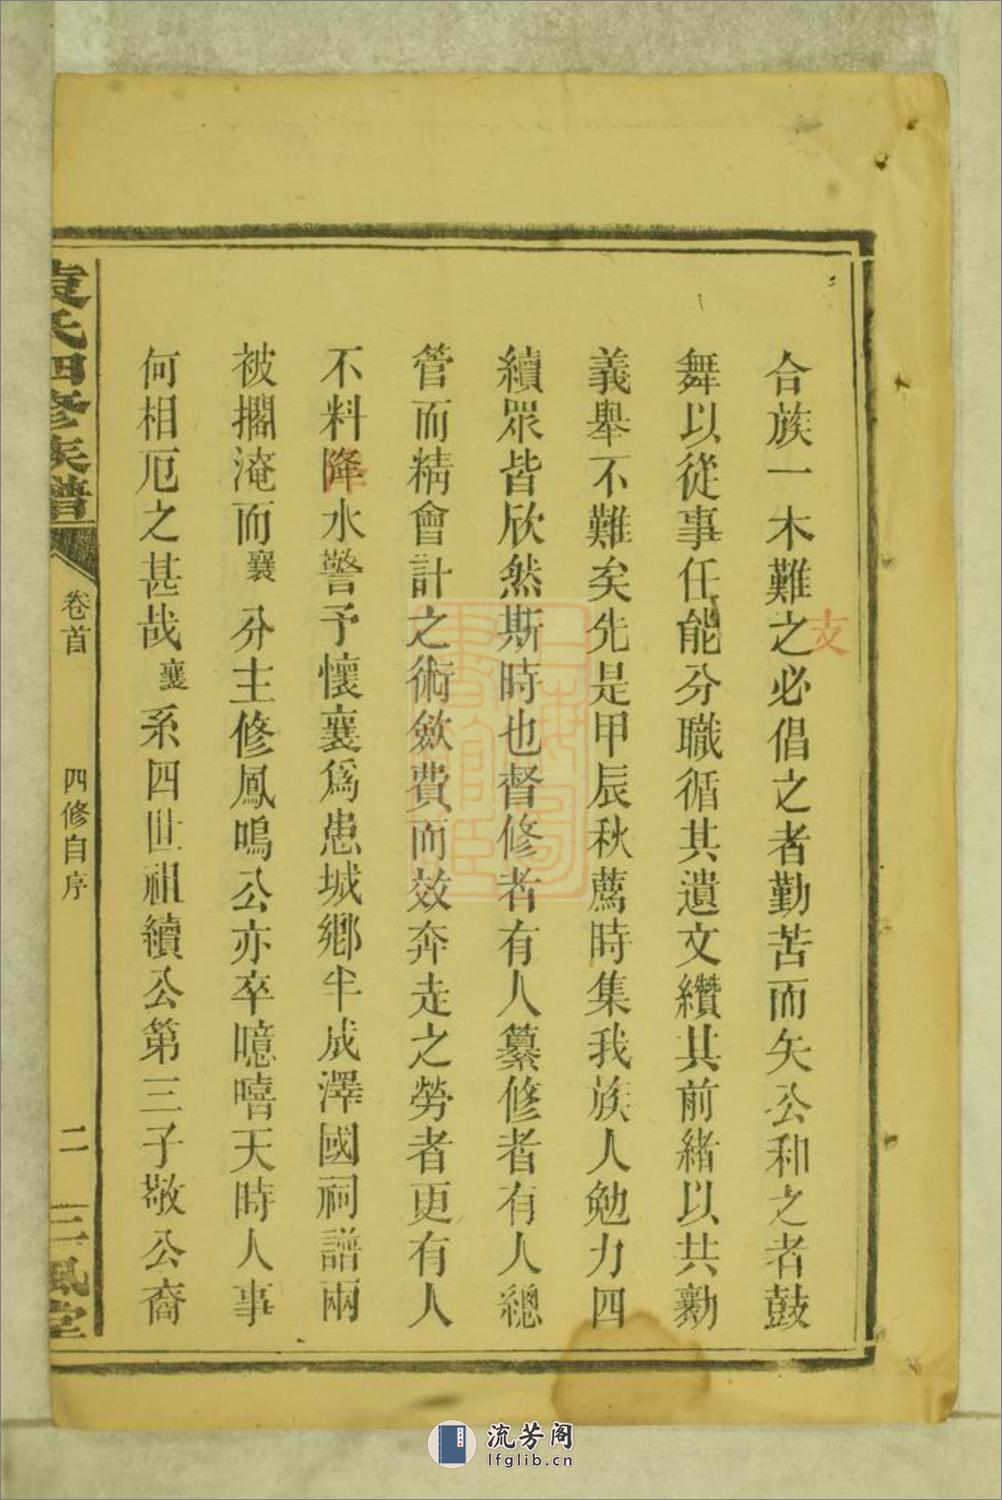 合族一木難之必倡之者勤苦而矢公和之者鼓
支
舞以從事任能分職循其遺文纘其前緒以共勷
義舉不難矣先是甲辰秋薦時集我族人勉力四
續眾皆欣然斯時也督修者有人纂修者有人總
管而精會計之術斂費而效奔走之勞者更有人
不料降水警予懷襄為患城鄉半成澤國祠譜兩
被擱淹而襄分主修鳳鳴公亦卒噫嘻天時人事
何相厄之甚哉襄系四世祖續公第三子敬公裔
袁氏四修族譜
卷首
四修自序
二
三風堂
流芳阁
lfglib.cn